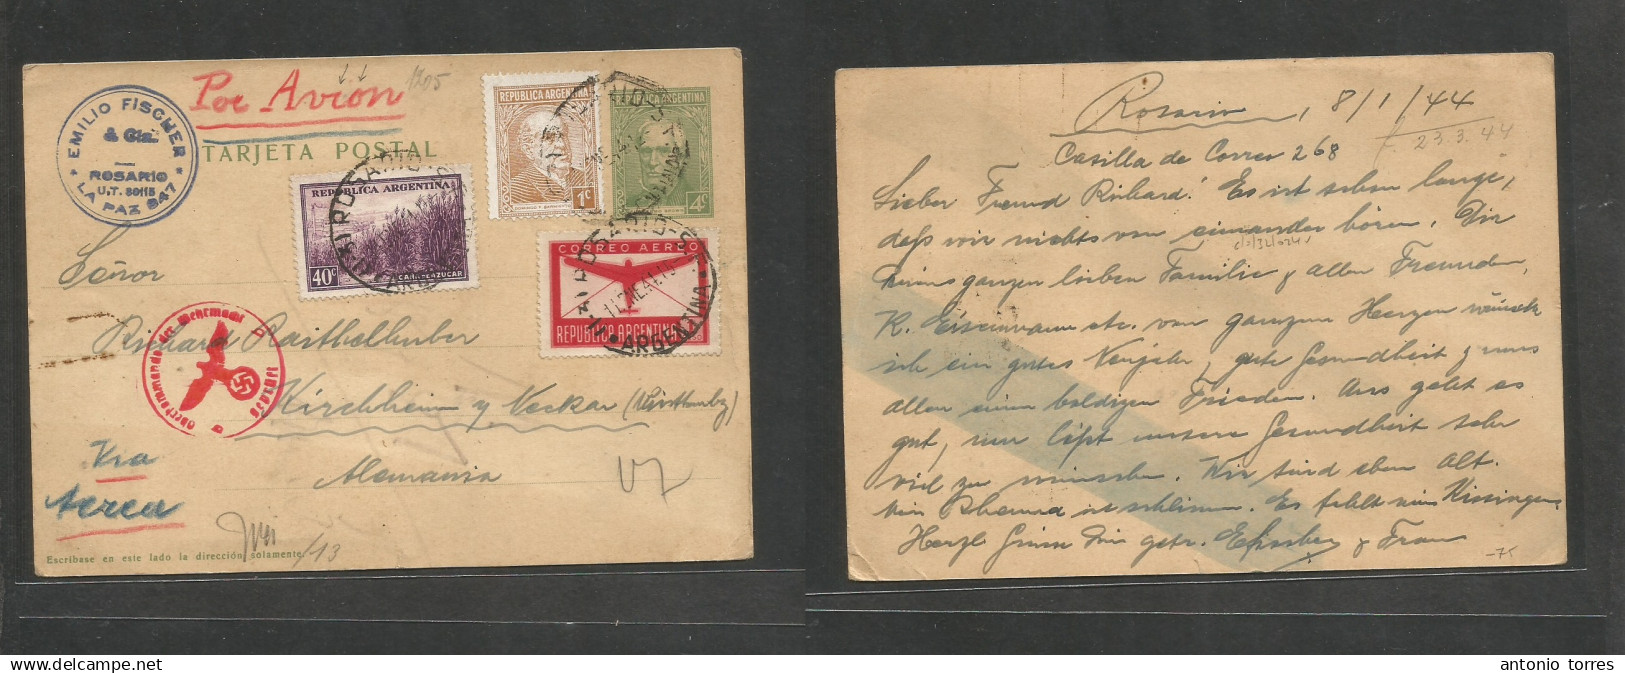 Por Avion
1205
EMILIO FISCHER
& Cia.
ROSARIO
U.T. 80115
LA PAZ 547
TARJETA POSTAL
REPUBLICA ARGENTINA
1c
REPUBLICA ARGENTINA
4c
REPUBLICA ARGENTINA
40c
CAÑA DE AZUCAR
CORREO AEREO
REPUBLICA ARGENTINA
ROSARIO
ARGENTINA
Señor
Richard Raithelhuber
Oberkommando der Wehrmacht
Kirchheim y Neckar (Württembg)
Alemania
Via
Aerea
Escríbase en este lado la dirección solamente.
/13
Rosario, 8/1/44
23.3.44
Casilla de Correo 268
Lieber Freund Richard! Es ist schon lange,
daß wir nichts von einander hören. Dir
Deiner ganzen lieben Familie & allen Freunden,
K. Eisenmann etc. von ganzem Herzen wünsch
ich ein gutes Neujahr, gute Gesundheit & uns
allen einen baldigen Frieden. Uns geht es
gut, nur läßt unsere Gesundheit sehr
viel zu wünschen. Wir sind eben alt.
Mein Rheuma ist schlimm. Es fehlt mir Kissingen
Herzl Grüsse Dein getr. & Frau
-75
antonio torres